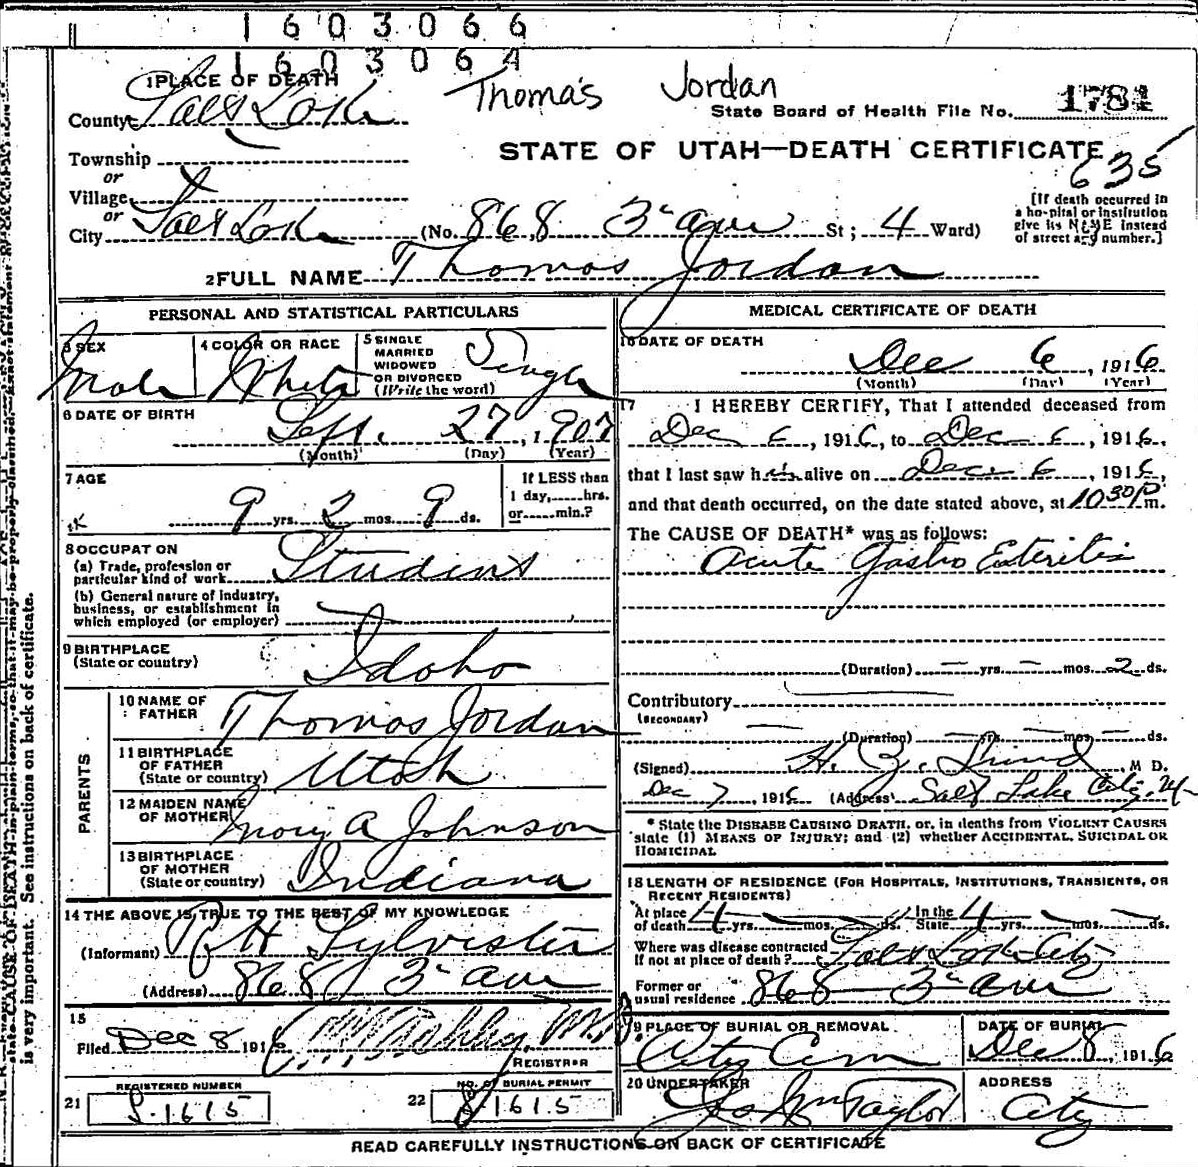 1603066
1603064
1 PLACE OF DEATH
Thomas Jordan
County Salt Lake
State Board of Health File No. 1781
Township
STATE OF UTAH—DEATH CERTIFICATE
635
or
Village
or
City Salt Lake (No. 868 3 ave St; 4 Ward)
[If death occurred in a hospital or institution give its NAME instead of street and number.]
2 FULL NAME Thomas Jordan
PERSONAL AND STATISTICAL PARTICULARS
3 SEX Male
4 COLOR OR RACE White
5 SINGLE MARRIED WIDOWED OR DIVORCED (Write the word) Single
6 DATE OF BIRTH
Sept. 27, 1907
(Month) (Day) (Year)
7 AGE
If LESS than
1 day, hrs.
or min.?
9 yrs. 2 mos. 9 ds.
8 OCCUPATION
(a) Trade, profession or
particular kind of work Student
(b) General nature of industry,
business, or establishment in
which employed (or employer)
9 BIRTHPLACE
(State or country) Idaho
PARENTS
10 NAME OF
FATHER Thomas Jordan
11 BIRTHPLACE
OF FATHER
(State or country) Utah
12 MAIDEN NAME
OF MOTHER Mary A Johnson
13 BIRTHPLACE
OF MOTHER
(State or country) Indiana
14 THE ABOVE IS TRUE TO THE BEST OF MY KNOWLEDGE
(Informant) H Sylvester
(Address) 868 3 ave
15
Filed Dec 8 1916
REGISTRAR
REGISTERED NUMBER
21 S-1615
NO. OF BURIAL PERMIT
22 1615
MEDICAL CERTIFICATE OF DEATH
16 DATE OF DEATH
Dec 6, 1916
(Month) (Day) (Year)
17 I HEREBY CERTIFY, That I attended deceased from
Dec 6, 1916, to Dec 6, 1916,
that I last saw him alive on Dec 6, 1916,
and that death occurred, on the date stated above, at 10 30 P m.
The CAUSE OF DEATH* was as follows:
Acute Gastro Enteritis
(Duration) — yrs. — mos. 2 ds.
Contributory
(SECONDARY)
(Duration) — yrs. — mos. — ds.
(Signed) H. Z. Lund, M D.
Dec 7, 1916 (Address) Salt Lake City, Ut
* State the DISEASE CAUSING DEATH, or, in deaths from VIOLENT CAUSES
state (1) MEANS OF INJURY; and (2) whether ACCIDENTAL, SUICIDAL OR
HOMICIDAL
18 LENGTH OF RESIDENCE (FOR HOSPITALS, INSTITUTIONS, TRANSIENTS, OR
RECENT RESIDENTS)
At place of death 4 yrs. — mos. — ds. In the State 4 yrs. — mos. — ds.
Where was disease contracted
If not at place of death? Salt Lake City
Former or
usual residence 868 3 ave
19 PLACE OF BURIAL OR REMOVAL
City Cem
DATE OF BURIAL
Dec 8, 1916
20 UNDERTAKER
Jos Wm Taylor
ADDRESS
City
READ CAREFULLY INSTRUCTIONS ON BACK OF CERTIFICATE
state CAUSE OF DEATH in plain terms, so that it may be properly classified. Exact statement
is very important. See instructions on back of certificate.